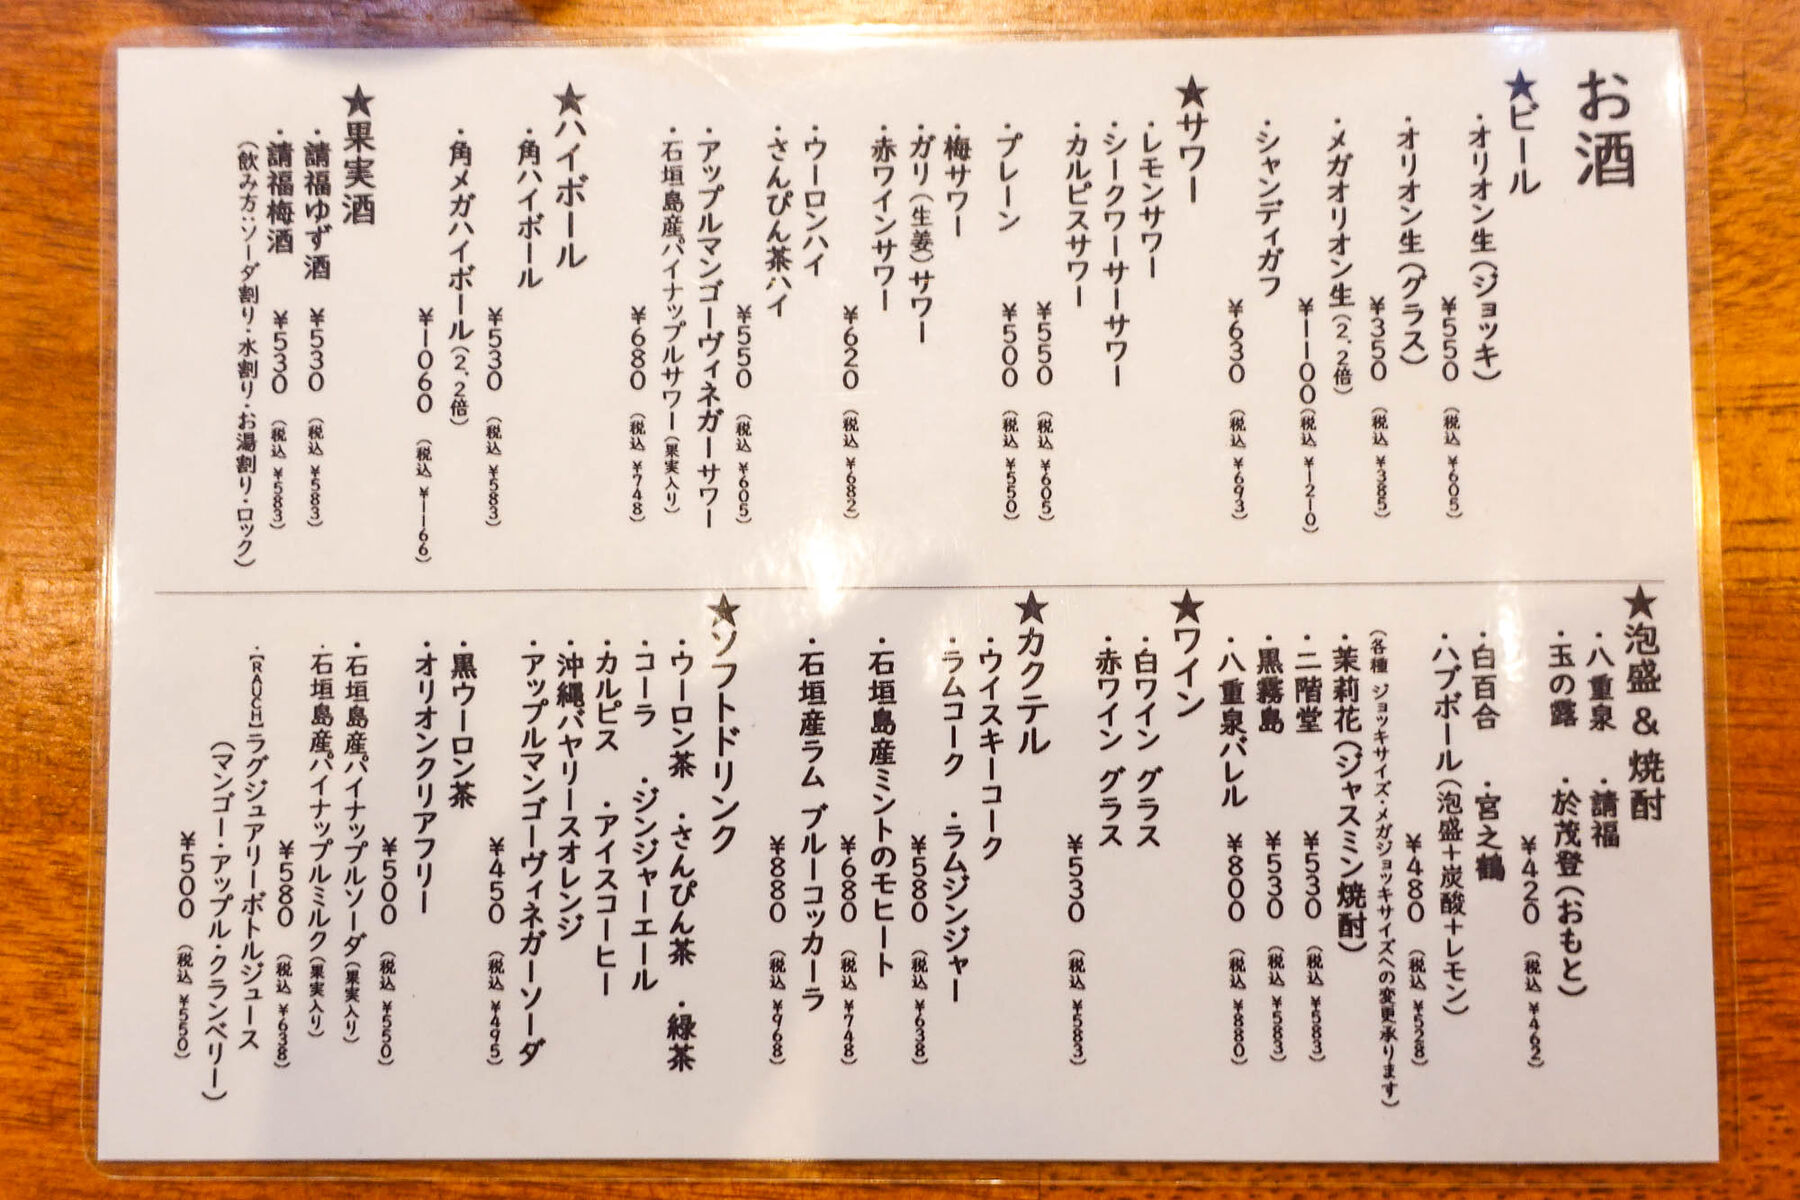 お酒
★ビール
・オリオン生(ジョッキ)
¥550(税込 ¥605)
・オリオン生(グラス)
¥350(税込 ¥385)
・メガオリオン生(2.2倍)
¥1100(税込 ¥1210)
・シャンディガフ
¥630(税込 ¥693)
★サワー
・レモンサワー
・シークワーサーサワー
・カルピスサワー
¥550(税込 ¥605)
・プレーン ¥500(税込 ¥550)
・梅サワー
・ガリ(生姜)サワー
・赤ワインサワー
¥620(税込 ¥682)
・ウーロンハイ
・さんぴん茶ハイ
¥550(税込 ¥605)
・アップルマンゴーヴィネガーサワー
・石垣島産パイナップルサワー(果実入り)
¥680(税込 ¥748)
★ハイボール
・角ハイボール
¥530(税込 ¥583)
・角メガハイボール(2.2倍)
¥1060(税込 ¥1166)
★果実酒
・請福ゆず酒 ¥530(税込 ¥583)
・請福梅酒 ¥530(税込 ¥583)
(飲み方:ソーダ割り・水割り・お湯割り・ロック)
★泡盛&焼酎
・八重泉 ・請福
・玉の露 ・於茂登(おもと)
¥420(税込 ¥462)
・白百合 ・宮之鶴
・ハブボール(泡盛+炭酸+レモン)
¥480(税込 ¥528)
(各種 ジョッキサイズ・メガジョッキサイズへの変更承ります)
・茉莉花(ジャスミン焼酎)
・二階堂 ¥530(税込 ¥583)
・黒霧島 ¥530(税込 ¥583)
・八重泉バレル ¥800(税込 ¥880)
★ワイン
・白ワイン グラス
・赤ワイン グラス
¥530(税込 ¥583)
★カクテル
・ウイスキーコーク
・ラムコーク ・ラムジンジャー
¥580(税込 ¥638)
・石垣島産ミントのモヒート
¥680(税込 ¥748)
・石垣産ラム ブルーコッカーラ
¥880(税込 ¥968)
★ソフトドリンク
・ウーロン茶 ・さんぴん茶 ・緑茶
・コーラ ・ジンジャーエール
・カルピス ・アイスコーヒー
・沖縄バヤリースオレンジ
・アップルマンゴーヴィネガーソーダ
¥450(税込 ¥495)
・黒ウーロン茶
・オリオンクリアフリー
¥500(税込 ¥550)
・石垣島産パイナップルソーダ(果実入り)
・石垣島産パイナップルミルク(果実入り)
¥580(税込 ¥638)
・【RAUCH】ラグジュアリーボトルジュース
(マンゴー・アップル・クランベリー)
¥500(税込 ¥550)